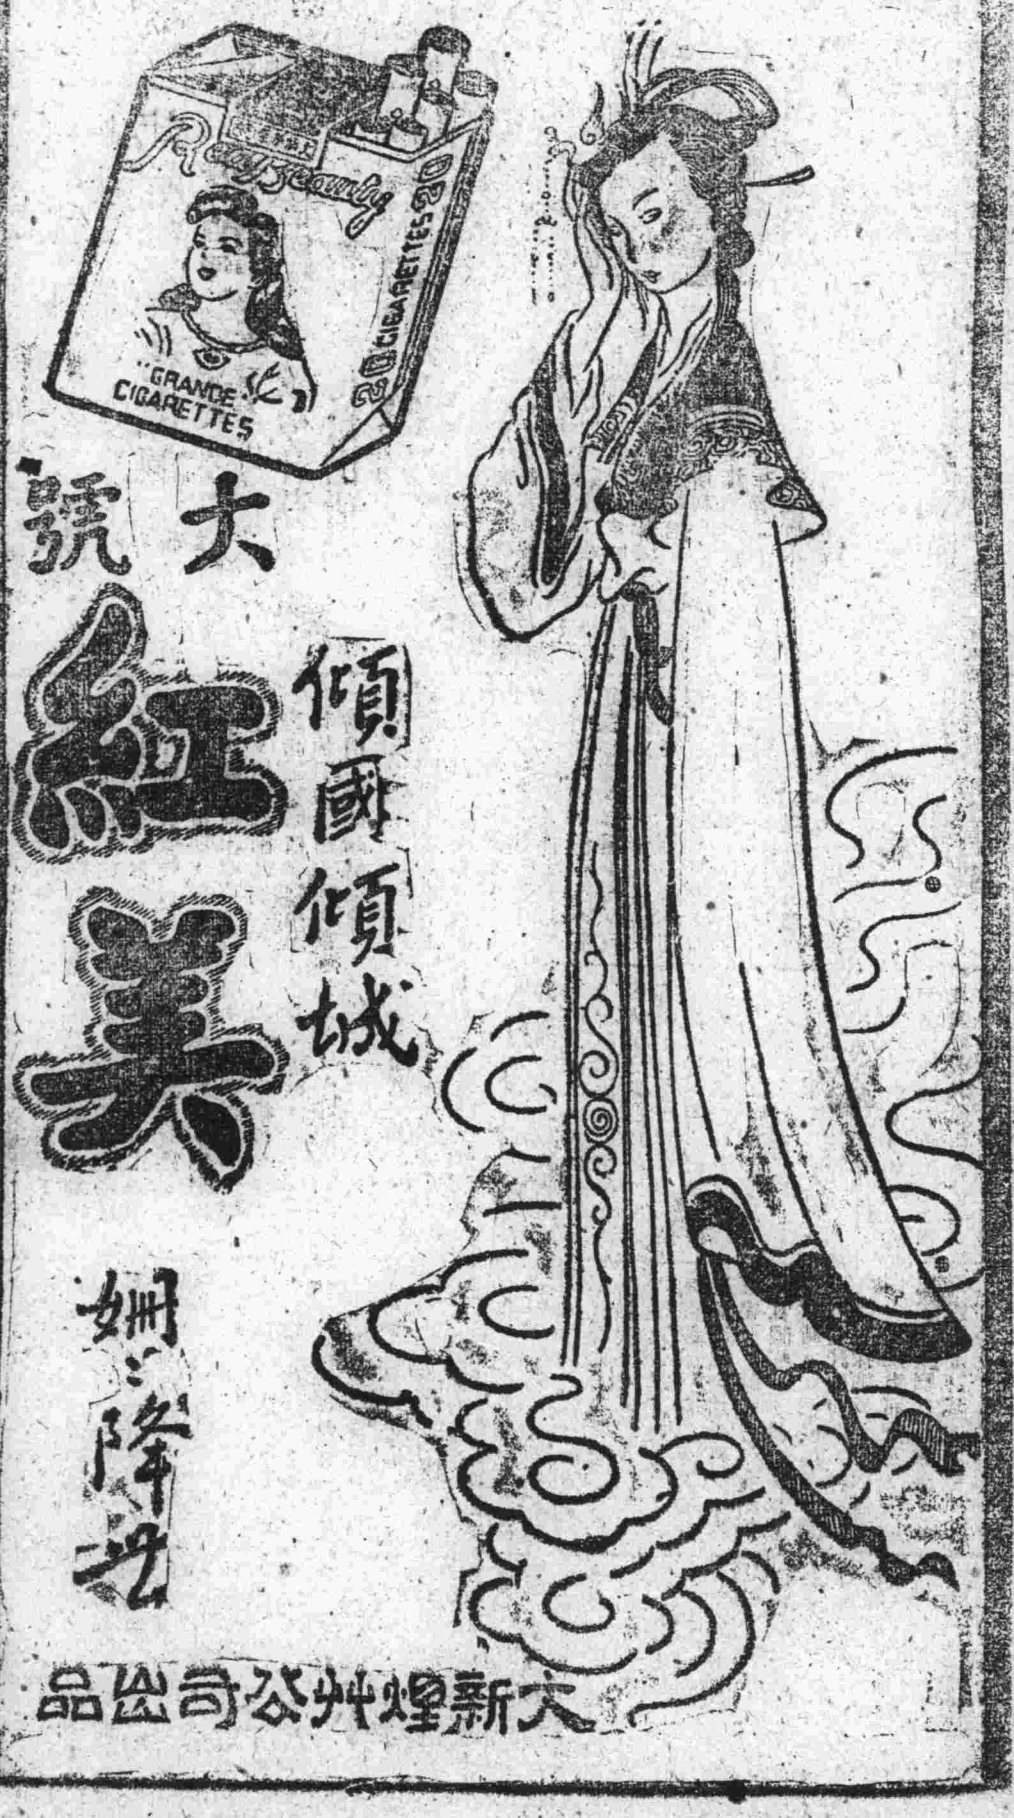 Beauty
20 CIGARETTES 20
"GRANDE"
CIGARETTES
大號
傾國傾城
紅美
姍〻降世
大新煙艸公司出品